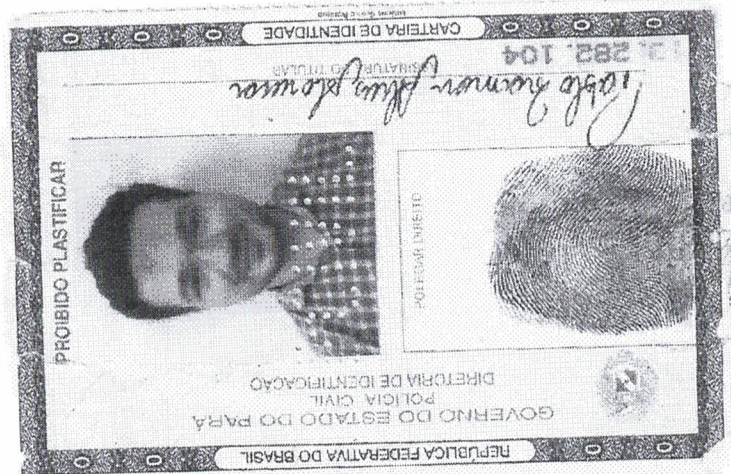 REPÚBLICA FEDERATIVA DO BRASIL
GOVERNO DO ESTADO DO PARÁ
POLICIA CIVIL
DIRETORIA DE IDENTIFICACAO
PROIBIDO PLASTIFICAR
POLEGAR DIREITO
Pablo Ramon
ASSINATURA DO TITULAR
282. 104
CARTEIRA DE IDENTIDADE